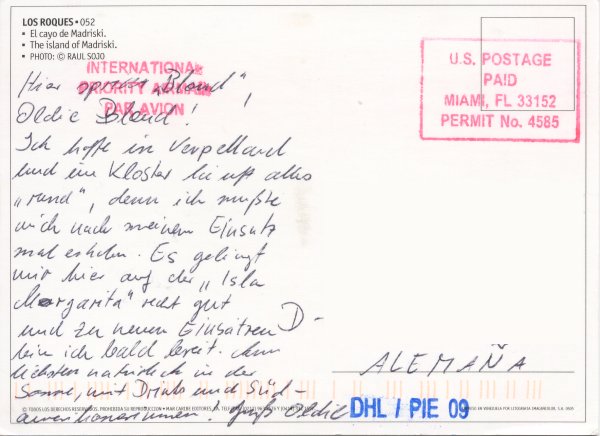 LOS ROQUES • 052
▪ El cayo de Madriski.
▪ The island of Madriski.
▪ PHOTO: © RAUL SOJO
INTERNATIONAL
PRIORITY AIRMAIL
PAR AVION
U.S. POSTAGE
PAID
MIAMI, FL 33152
PERMIT No. 4585
Hier "Blond",
Oldie Blond!
Ich hoffe im
und im Kloster läuft alles
"rund", denn ich mußte
mich nach meinem Einsatz
mal erholen. Es gelingt
mir hier auf der "Isla
Margarita" recht gut
und zu neuen Einsätzen
bin ich bald bereit. Am
liebsten natürlich in der
Sonne, mit Drinks und Süd-
amerikanerinnen! Gruß Oldie
D-
ALEMAÑA
© TODOS LOS DERECHOS RESERVADOS. PROHIBIDA SU REPRODUCCION
DHL / PIE 09